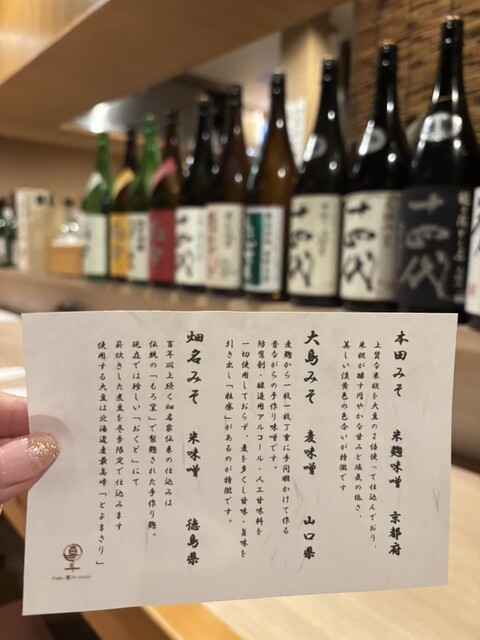 十四代
十四代
十四代
十四代
本田みそ 米麹味噌 京都府
上質な米糀を大豆の2倍使って仕込んでおり、
米糀が醸す円やかな甘みと塩気の低さ、
美しい淡黄色の色合いが特徴です
大島みそ 麦味噌 山口県
麦麹から一枚一枚丁重に手間暇かけて作る
昔ながらの手作り味噌です。
防腐剤・醸造用アルコール・人工甘味料を
一切使用しておらず、麦を多くし甘味・旨味を
引き出し「粒感」があるのが特徴です。
畑名みそ 米味噌 徳島県
百年以上続く畑名家伝来の仕込みは
伝統の「もろ室」で製麹された手作り麹。
現在では珍しい「おくど」にて
薪炊きした煮豆を冬季限定で仕込みます
使用する大豆は北海道産最高峰「とよまさり」